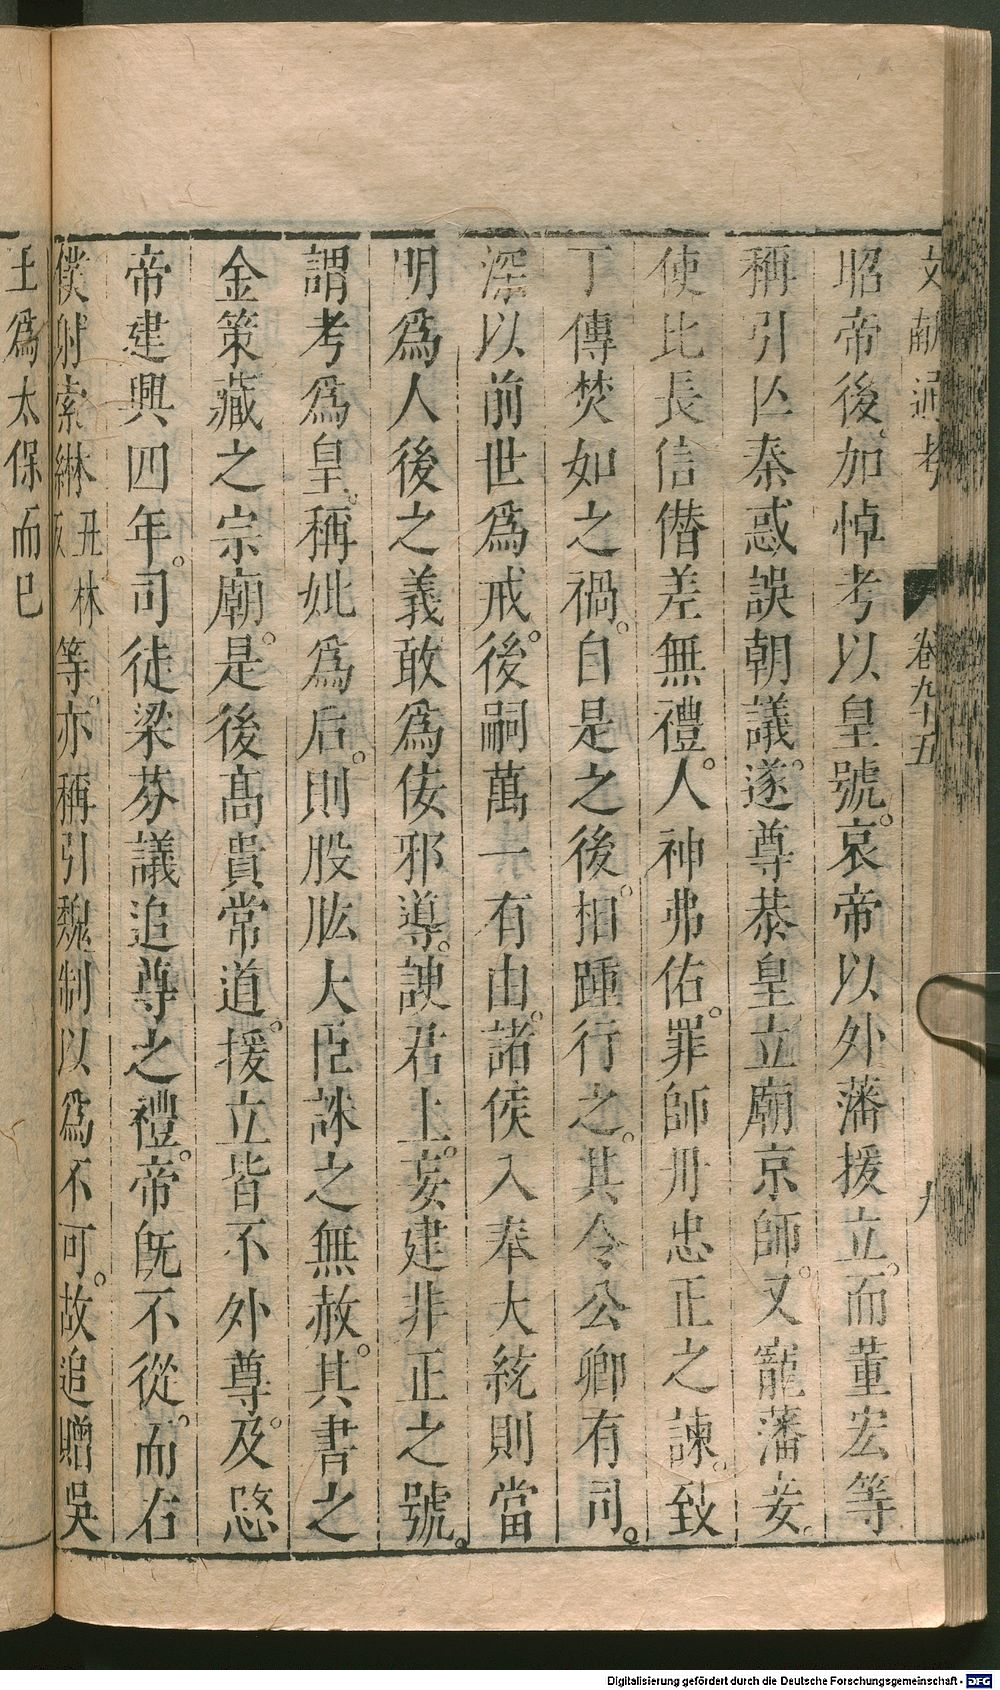 文獻通考 卷九十五 九
昭帝後。加悼考以皇號。哀帝以外藩援立。而董宏等
稱引亾秦惑誤朝議。遂尊恭皇立廟京師。又寵藩妾。
使比長信僭差無禮。人神弗佑。罪師丹忠正之諫。致
丁傅焚如之禍。自是之後。相踵行之。其令公卿有司。
深以前世爲戒。後嗣萬一有由。諸侯入奉大統則當
明爲人後之義敢爲佞邪導。諛君上。妄建非正之號。
謂考爲皇。稱妣爲后。則股肱大臣誅之無赦。其書之
金策藏之宗廟。是後高貴常道。援立皆不外尊。及愍
帝建興四年。司徒梁芬議追尊之禮。帝旣不從。而右
僕射索綝丑林反等。亦稱引魏制以爲不可。故追贈吳
王爲太保而已
Digitalisierung gefördert durch die Deutsche Forschungsgemeinschaft - DFG